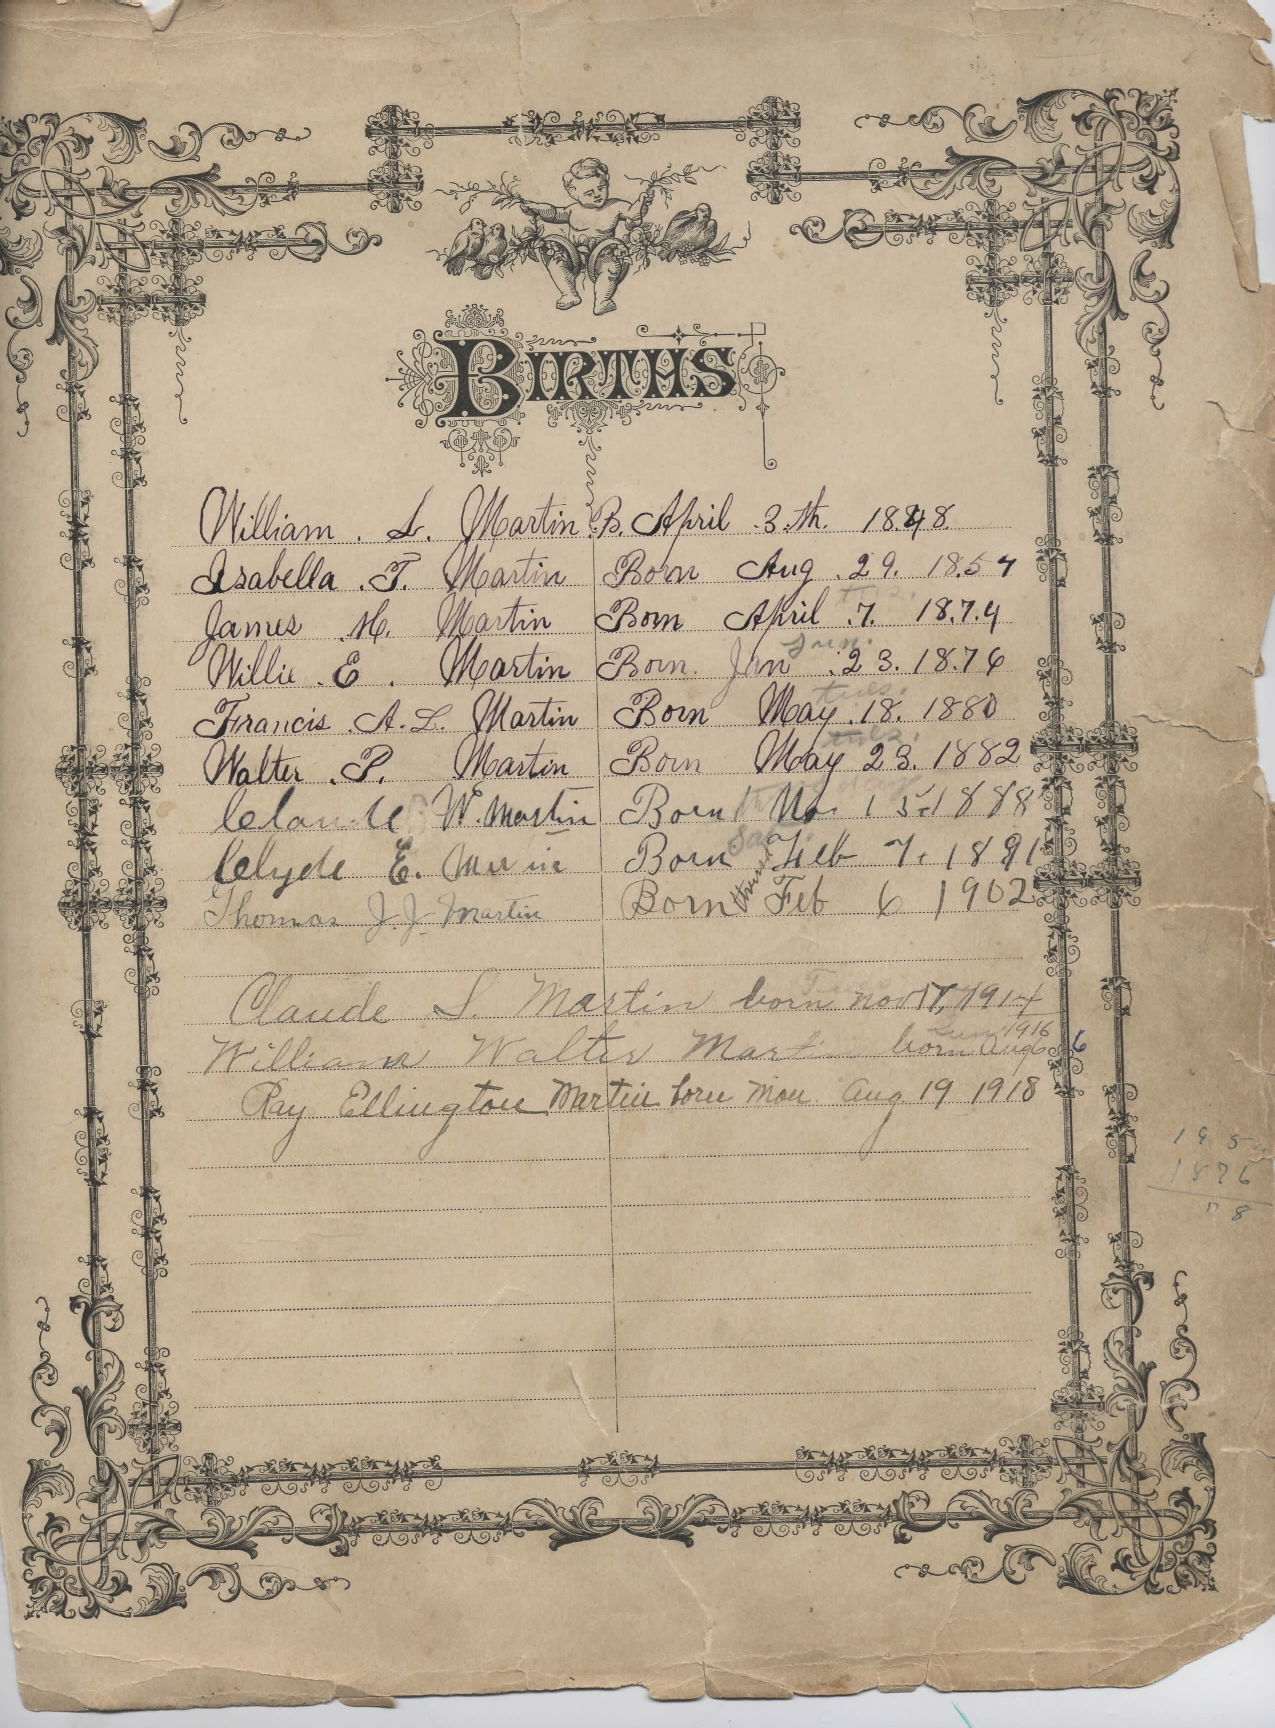 BIRTHS
William . L. Martin B. April . 3.th. 1848.
Isabella . T. Martin Born Aug . 29. 1857
tues.
James . H. Martin Born April . 7. 1874
sun.
Willie . E . Martin Born. Jan . 23. 1876
tues.
Francis . A. L. Martin Born May . 18. 1880
tues.
Walter . P. Martin Born May 23. 1882
Claude W. Martin Born Nov 15. 1888
Sat.
Clyde E. Born Feb 7. 1891
Thomas J. J. Martin Born thurs Feb 6 1902
Claude L. Martin born nov 17, 1914
Sun 1916
William Walter Martin born Aug 6
Ray Ellington Martin born Mon. Aug 19 1918
1876
78